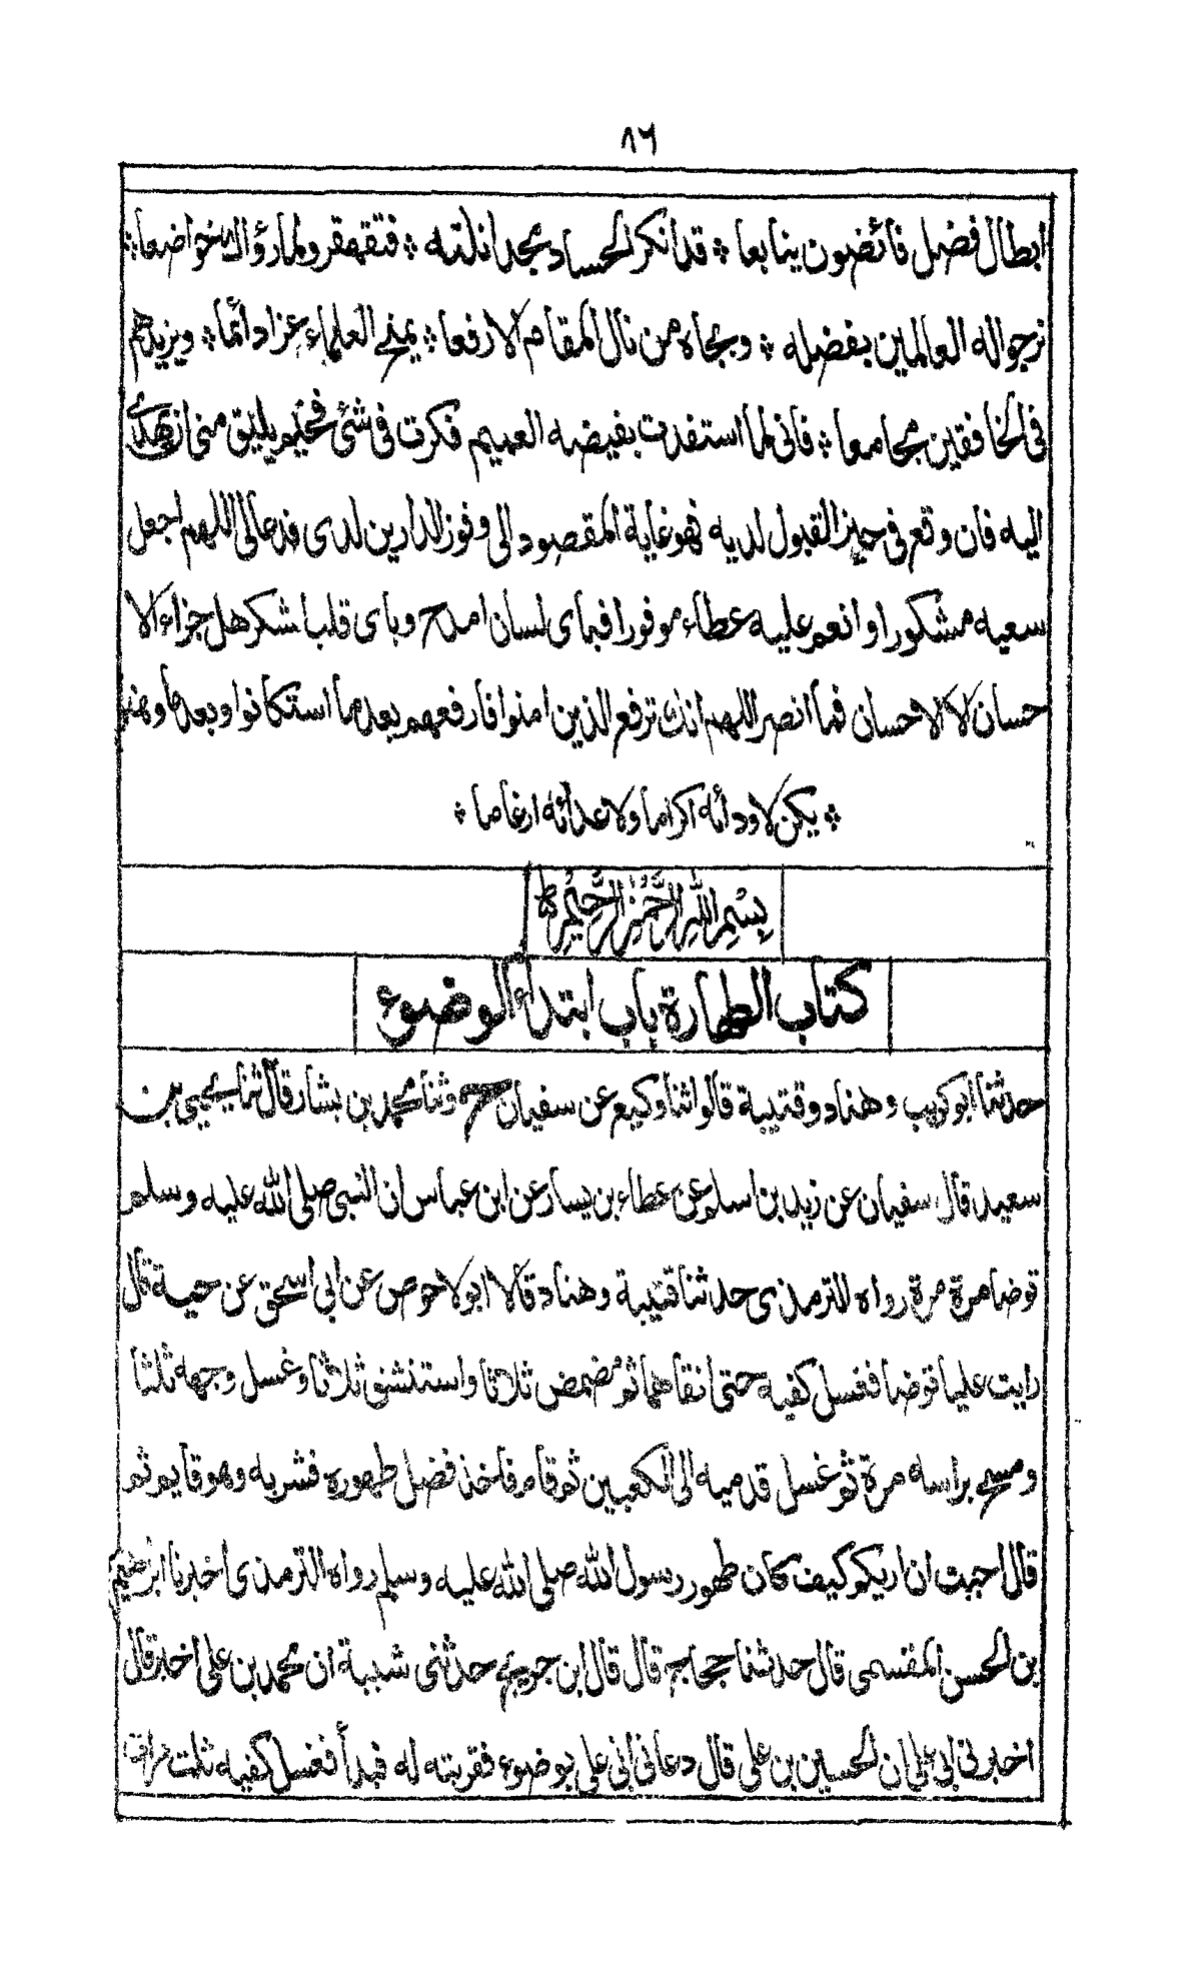 ٨٦
ابطال فضل فائضون ينابعا ※ قد انكر الحساد مجدا نلته ※ فتقهقروا لما رؤا خواضعا ※
نرجو اله العالمين بفضله ※ وبجاه من نال المقام الارفعا ※ يمنح العلماء عزا دائما ※ ويزيدهم
فى الخافقين مجامعا ※ فانى لما استفدت بفيضه العميم فكرت فى شئ فخيم يليق منى ان تهدى
اليه فان وقع فى حيز القبول لديه فهو غاية المقصود الى وفوز الدارين لدى فدعائى اللهم اجعل
سعيه مشكورا وانعم عليه عطاء موفورا فباى لسان امدح وباى قلب اشكر هل جزاء الا
حسان الا الاحسان فما انصر اللهم انك ترفع الذين امنوا فارفعهم بعد ما استكانوا وبعد ما وهنوا
※ يكن لاودائه اكراما ولاعدائه ارغاما ※
بِسْمِ اللهِ الرَّحْمٰنِ الرَّحِيْمِ
كتاب الطهارة باب ابتداء الوضوء
حدثنا ابو كريب وهناد وقتيبة قالوا ثنا وكيع عن سفيان ح وثنا محمد بن بشار قال ثنا يحيى بن
سعيد قال سفيان عن زيد بن اسلم عن عطاء بن يسار عن ابن عباس ان النبى صلى الله عليه وسلم
توضا مرة مرة رواه الترمذى حدثنا قتيبة وهناد قالا ابو الاحوص عن ابى اسحق عن حية قال
رايت عليا توضا فغسل كفيه حتى انقاهما ثم مضمض ثلاثا واستنشق ثلاثا وغسل وجهه ثلثا
ومسح براسه مرة ثم غسل قدميه الى الكعبين ثم قام فاخذ فضل طهوره فشربه وهو قايم ثم
قال احببت ان اريكم كيف كان طهور رسول الله صلى الله عليه وسلم رواه الترمذى اخبرنا ابرهيم
بن الحسن المقسمى قال حدثنا حجاج قال قال ابن جريج حدثنى شيبة ان محمد بن على اخبر قال
اخبرنى ابى على ان الحسين بن على قال دعانى ابى على بوضوء فقربته له فبدأ فغسل كفيه ثلث مرات